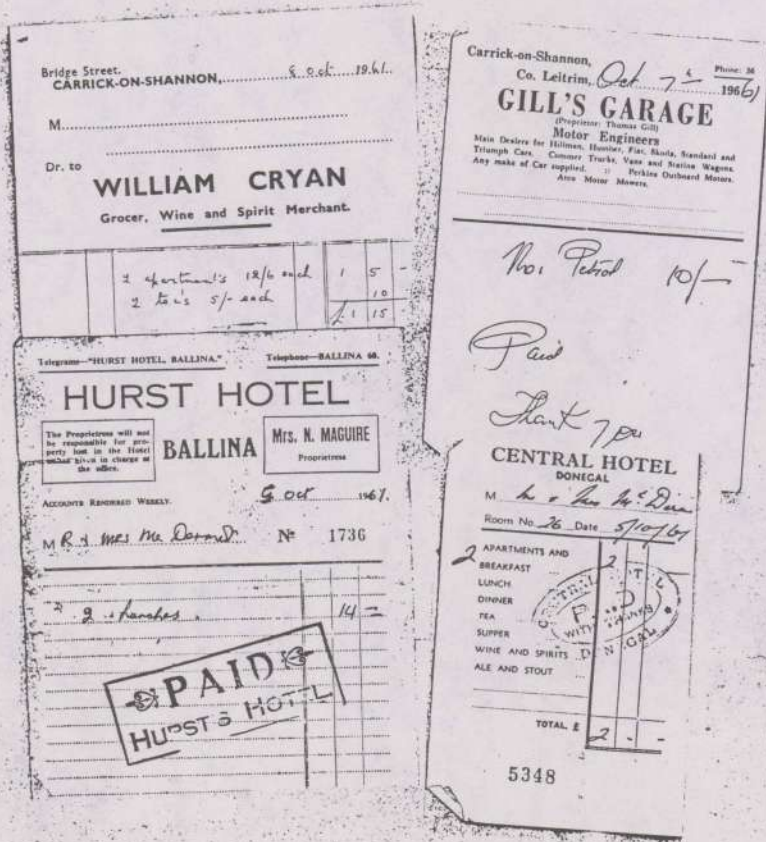 Bridge Street.
CARRICK-ON-SHANNON, Oct 1961.
M
Dr. to
WILLIAM CRYAN
Grocer, Wine and Spirit Merchant.
2 apartments 12/6 each 1 5 -
2 teas 5/- each 10
£1 15
Telegrams—"HURST HOTEL, BALLINA." Telephone—BALLINA 60.
HURST HOTEL
The Proprietress will not
be responsible for pro-
perty lost in the Hotel
unless given in charge at
the office.
BALLINA
Mrs. N. MAGUIRE
Proprietress
ACCOUNTS RENDERED WEEKLY.
Oct 1961.
M R & Mrs Mc Dermott Nº 1736
2 Lunches 14 =
PAID
HURST'S HOTEL
Carrick-on-Shannon, Phone: 36
Co. Leitrim, Oct 7 1961
GILL'S GARAGE
(Proprietor: Thomas Gill)
Motor Engineers
Main Dealers for Hillman, Humber, Fiat, Skoda, Standard and
Triumph Cars. Commer Trucks, Vans and Station Wagons.
Any make of Car supplied. :: Perkins Outboard Motors.
Atco Motor Mowers.
Petrol 10/-
Paid
Thank you
CENTRAL HOTEL
DONEGAL
M
Room No. 26 Date 5/10/61
2 APARTMENTS AND
BREAKFAST 2
LUNCH
DINNER
TEA
SUPPER
WINE AND SPIRITS
ALE AND STOUT
CENTRAL HOTEL
PAID
WITH THANKS
DONEGAL
TOTAL £ 2 - -
5348